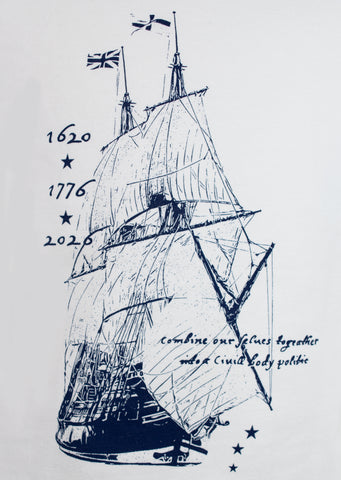 1620
1776
2026
combine our selves togeather
into a Civill body politic